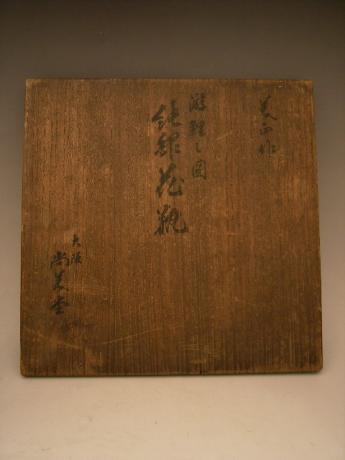 美正作
游鯉之図
純銀花瓶
大阪
尚美堂